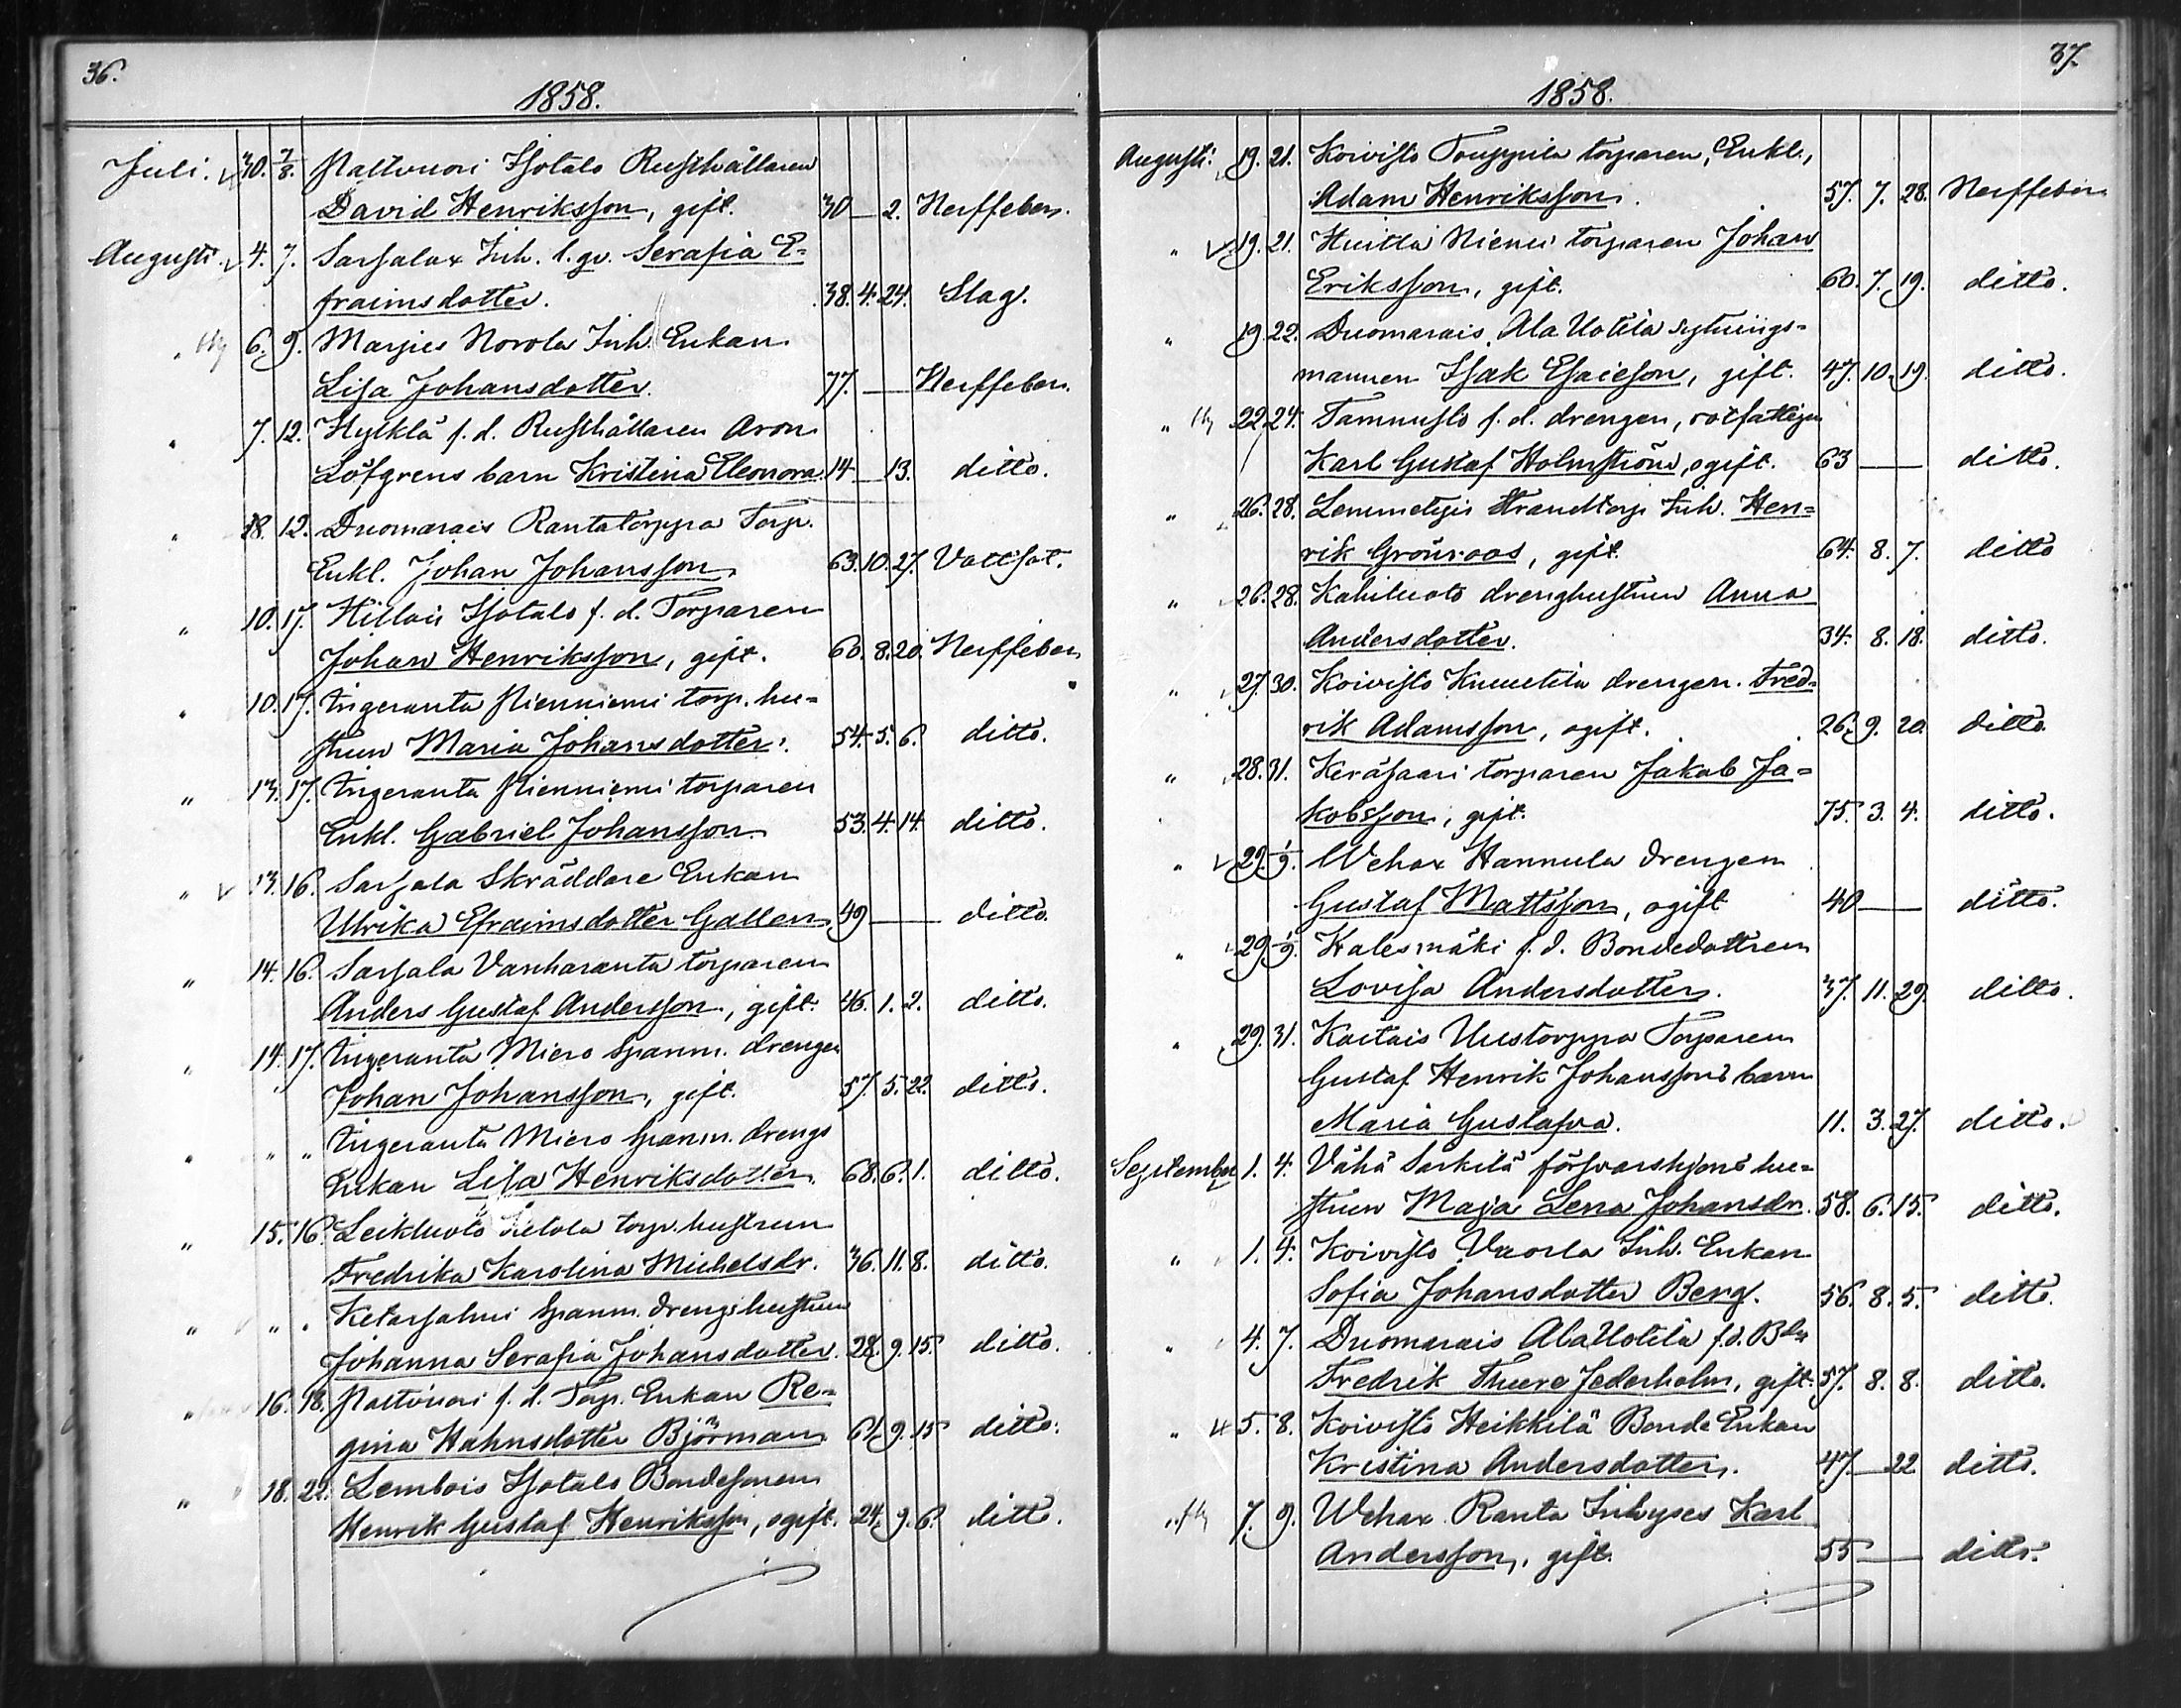 36.
1858.
Juli. 30. 7/8. Naltvuori Isotalo Rusthållaren
David Henriksson, gift. 30 — 2. Nerffeber.
Augusti. 4. 7. Sarsalax Inh. l. qv. Serafia E-
fraimsdotter. 38. 4. 24. Slag.
" 6. 9. Marjus Norola Inh. Enkan
Lisa Johansdotter. 77. — Nerffeber.
" 7. 12. Hyrklä f. d. Rusthållaren Aron
Löfgrens barn Kristina Eleonora. 14 — 13. ditto.
" 8. 12. Duomarais Rantatorppa Torp.
Enkl. Johan Johansson. 63. 10. 27. Vattsot.
" 10. 17. Hillois Isotalo f. d. Torparen
Johan Henriksson, gift. 60. 8. 20. Nerffeber.
" 10. 17. Nienniemi torp. hu-
strun Maria Johansdotter. 54. 5. 6. ditto.
" 13. 17. Nienniemi torparen
Enkl. Gabriel Johansson. 53. 4. 14. ditto.
" 13. 16. Sarsala Skräddare Enkan
Ulrika Efraimsdotter Gallen 49 — ditto.
" 14. 16. Sarsala Vanharanta torparen
Anders Gustaf Andersson, gift. 46. 1. 2. ditto.
" 14. 17. Miero spanm. drengen
Johan Johansson, gift. 57. 5. 22. ditto.
" " " Miero Spanm. drengs
Enkan Lisa Henriksdotter. 68. 6. 1. ditto.
" 15. 16. Leikluoto torp. hustrun
Fredrika Karolina Michelsdr. 36. 11. 8. ditto.
" " " Ketarsalmi Spanm. drengshustrun
Johanna Serafia Johansdotter. 28. 9. 15. ditto.
" 16. 18. Naltvuori f. d. Torp. Enkan Re-
gina Hahnsdotter Björman 61. 9. 15 ditto.
" 18. 22. Lembois Isotalo Bondesonen
Henrik Gustaf Henriksson, ogift. 24. 9. 6. ditto.
37.
1858.
Augusti. 19. 21. Koivisto Touppila torparen, Enkl.,
Adam Henriksson. 57. 7. 28. Nerffeber
" 19. 21. Huitta Niemi torparen Johan
Eriksson, gift. 60. 7. 19. ditto.
" 19. 22. Duomarais Ala Uotila sytnings-
mannen Isak Esaieson, gift. 47. 10. 19. ditto.
" 22. 24. Tammisto f. d. drengen, rotfattigen
Karl Gustaf Holmström, ogift. 63 — ditto.
" 26. 28. Lemmetyis Strandtorp Inh. Hen-
rik Grönroos, gift. 64. 8. 7. ditto
" 26. 28. Kahiluoto drenghustrun Anna
Andersdotter. 34. 8. 18. ditto.
" 27. 30. Koivisto drengen. Fred-
rik Adamsson, ogift. 26. 9. 20. ditto.
" 28. 31. Keräsaari torparen Jakob Ja-
kobsson, gift. 75. 3. 4. ditto.
" 29. 1/9. Wehax Hannula drengen
Gustaf Mattsson, ogift 40 — ditto.
" 29. 1/9. Halesmäki f. d. Bondedottren
Lovisa Andersdotter. 37. 11. 29. ditto.
" 29. 31. Kaitais Uustorppa Torparen
Gustaf Henrik Johanssons barn
Maria Gustafva. 11. 3. 27. ditto.
September 1. 4. Vähä Särkilä försvarshjons hu-
strun Maja Lena Johansdr. 58. 6. 15. ditto.
" 1. 4. Koivisto Vuorla Inh. Enkan
Sofia Johansdotter Berg. 56. 8. 5. ditto.
" 4. 7. Duomarais Ala Uotila f. d. Bdn
Fredrik Thure Jederholm, gift. 57. 8. 8. ditto.
" 5. 8. Koivisto Heikkilä Bonde Enkan
Kristina Andersdotter. 47 — 22 ditto.
" 7. 9. Wehax Ranta Inhyses Karl
Andersson, gift. 55 — ditto.